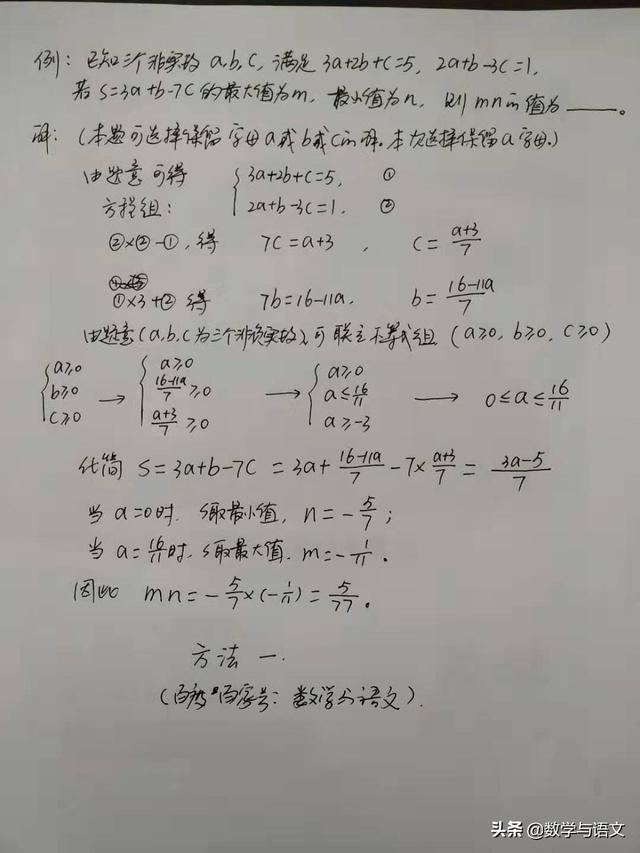 例：已知三个非实数 a,b,c, 满足 3a+2b+c=5, 2a+b-3c=1,
若 S=3a+b-7c 的最大值为m, 最小值为n, 则 mn的值为____。
解：(本题可选择保留字母a或b或c的解。本次选择保留a字母。)
由题意可得 { 3a+2b+c=5, ①
方程组： 2a+b-3c=1. ②
②×②-①, 得 7c=a+3, c=\frac{a+3}{7}
①×3+② 得 7b=16-11a, b=\frac{16-11a}{7}
由题意(a,b,c为三个非负实数),可联立不等式组 (a≥0, b≥0, c≥0)
{ a≥0 b≥0 c≥0 → { a≥0 \frac{16-11a}{7}≥0 \frac{a+3}{7}≥0 → { a≥0 a≤\frac{16}{11} a≥-3 → 0≤a≤\frac{16}{11}
化简 S=3a+b-7c = 3a+\frac{16-11a}{7}-7×\frac{a+3}{7}=\frac{3a-5}{7}
当 a=0时, S取最小值, n=-\frac{5}{7};
当 a=\frac{16}{11}时, S取最大值, m=-\frac{1}{11}.
因此 mn=-\frac{5}{7}×(-\frac{1}{11})=\frac{5}{77}。
方法一.
(百度"百家号：数学与语文).
头条 @数学与语文